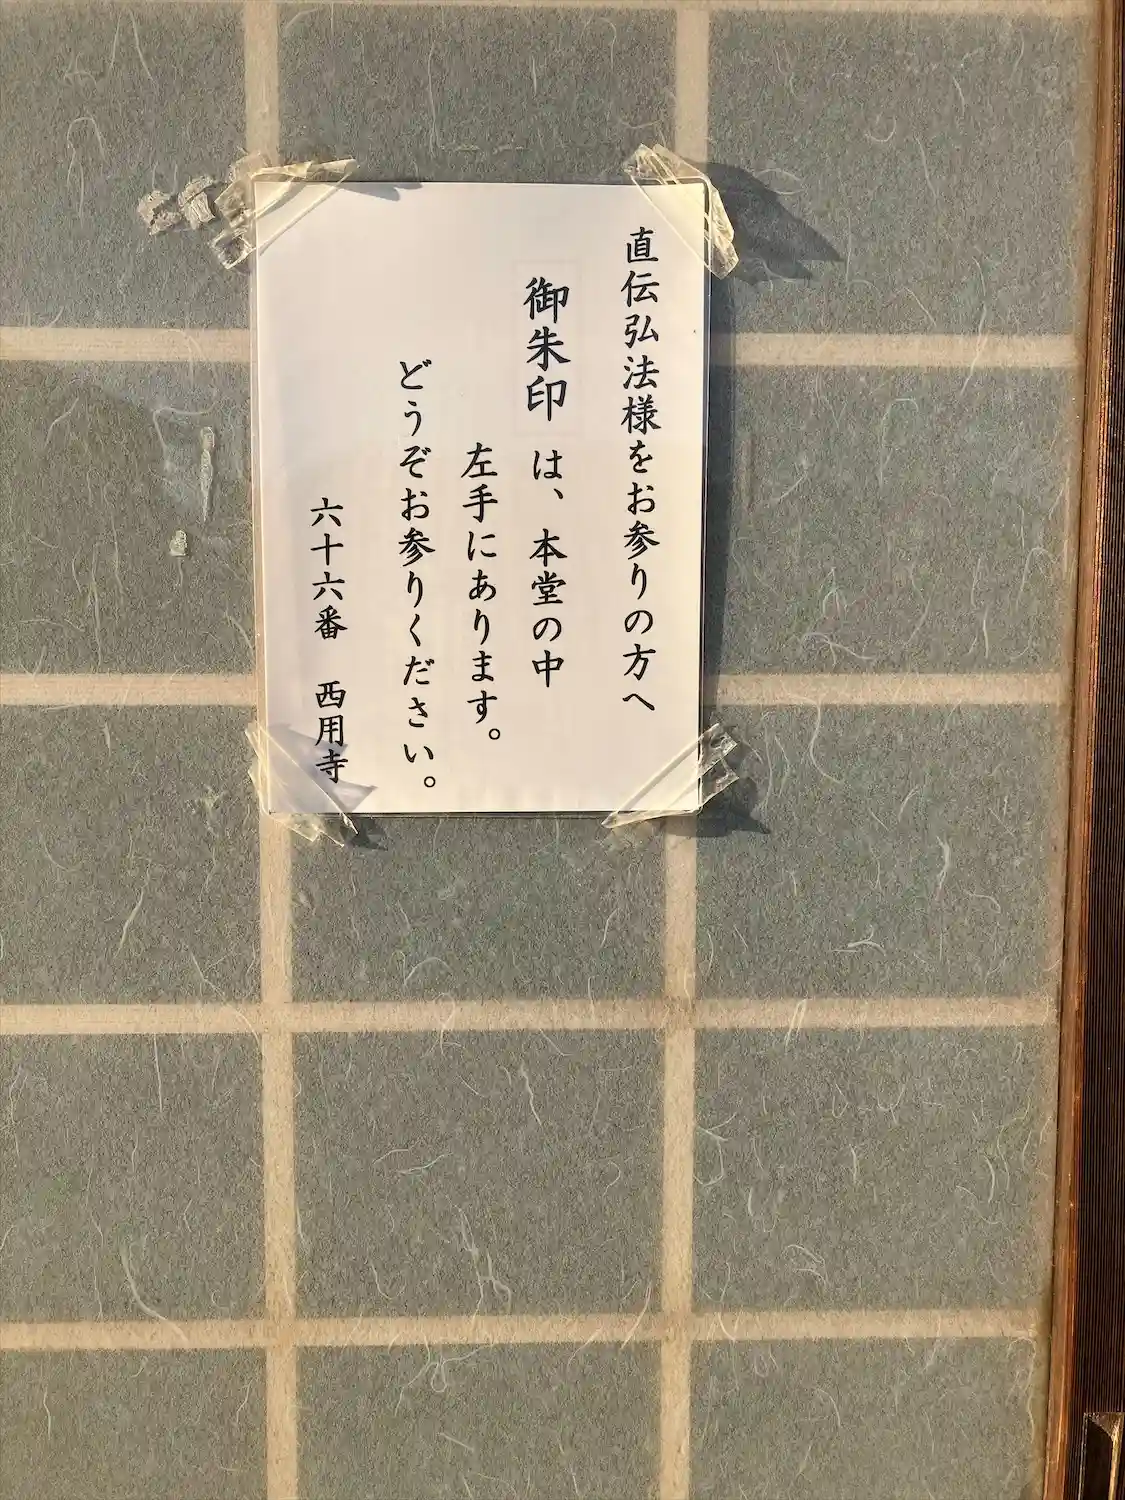 直伝弘法様をお参りの方へ
御朱印は、本堂の中
左手にあります。
どうぞお参りください。
六十六番　西用寺